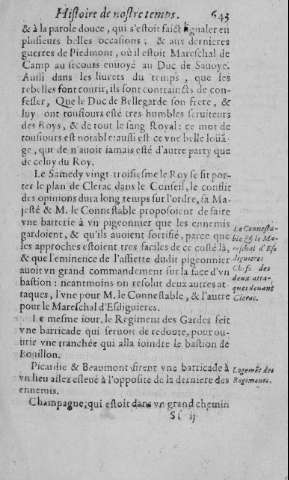 Histoire de nostre temps. 643
& à la parole douce, qui s'estoit faict signaler en
plusieurs belles occasions, & aux dernieres
guerres de Piedmont, où il estoit Mareschal de
Camp au secours enuoyé au Duc de Sauoye.
Aussi dans les liurets du temps, que les
rebelles font courir, ils sont contraincts de con-
fesser, Que le Duc de Bellegarde son frere, &
luy ont tousiours esté tres humbles seruiteurs
des Roys, & de tout le sang Royal: ce mot de
tousiours est notable: aussi est-ce vne belle loüã-
ge, que de n'auoir iamais esté d'autre party que
de celuy du Roy.
Le Samedy vingt troisiesme le Roy se fit por-
ter le plan de Clerac dans le Conseil, le conflit
des opinions dura long temps sur l'ordre, sa Ma-
jesté & M. le Connestable proposoient de faire
vne batterie à vn pigeonnier que les ennemis
gardoient, & qu'ils auoient fortifié, parce que
les approches estoient tres faciles de ce costé là,
& que l'eminence de l'assiette dudit pigeonnier
auoit vn grand commandement sur la face d'vn
bastion: neantmoins on resolut deux autres at-
taques, l'vne pour M. le Connestable, & l'autre
pour le Mareschal d'Esdiguieres.
Le Connesta-
ble & le Ma-
reschal d'Es
diguieres
Chefs des
deux atta-
ques deuant
Clerac.
Le mesme iour, le Regiment des Gardes fait
vne barricade qui seruoit de redoute, pour ou-
urir vne tranchée qui alla ioindre le bastion de
Boüillon.
Picardie & Beaumont firent vne barricade à
vn lieu assez esleué à l'opposite de la derniere des
ennemis.
Logemẽt des
Regements.
Champagne, qui estoit dans vn grand chemin
Sf ij